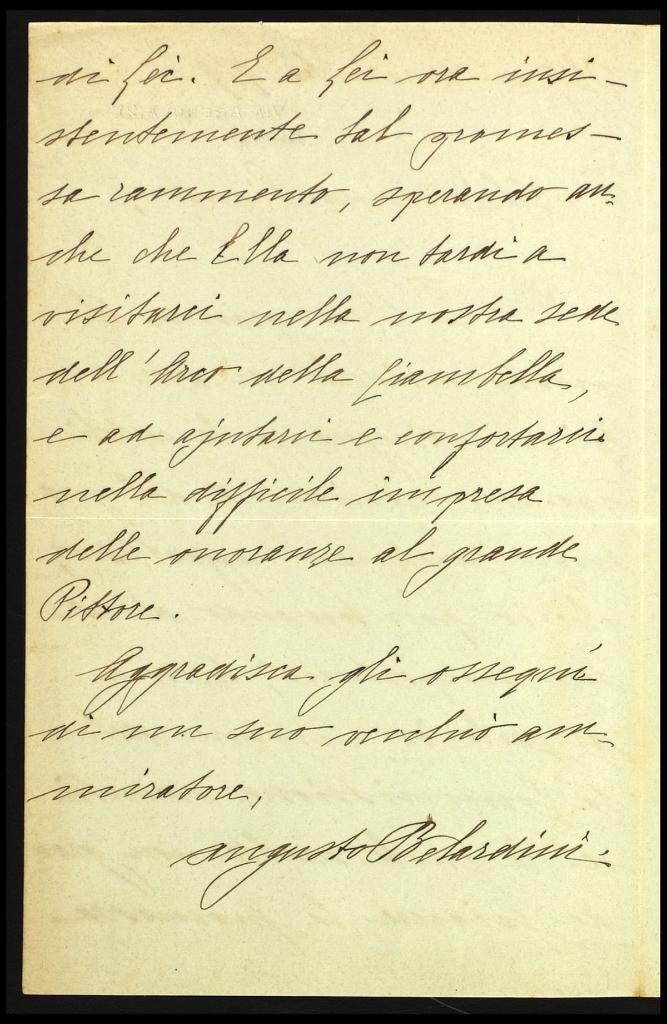 di Lei. E a Lei ora insi-
stentemente tal promes-
sa rammento, sperando an-
che che Ella non tardi a
visitarci nella nostra sede
dell'Arco della Ciambella,
e ad ajutarci e confortarci
nella difficile impresa
delle onoranze al grande
Pittore.
Aggradisca gli ossequi
di un suo vecchio am-
miratore,
Augusto Belardini.